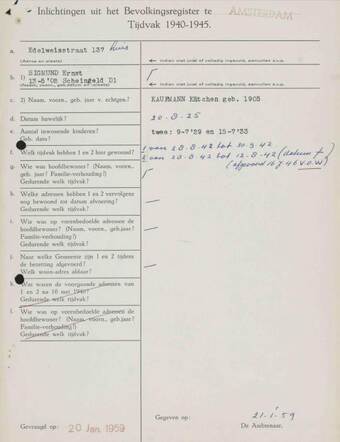 Inlichtingen uit het Bevolkingsregister te AMSTERDAM
Tijdvak 1940-1945.
a. Edelweisstraat 137 huis
(Adres en plaats)
← Indien niet juist of volledig ingevuld, aanvullen s.v.p.
b. 1) SIGMUND Ernst
13-6'08 Scheingeld D1
(Naam, voorn., geb.datum en -plaats)
← Indien niet juist of volledig ingevuld, aanvullen s.v.p.
c. 2) Naam, voorn., geb. jaar v. echtgen.?
KAUFMANN Kätchen geb. 1905
d. Datum huwelijk?
20-8-25
e. Aantal inwonende kinderen?
Geb. data?
twee: 9-7'29 en 15-7'33
f. Welk tijdvak hebben 1 en 2 hier gewoond?
g. Wie was hoofdbewoner? (Naam, voorn.,
geb.jaar? Familie-verhouding?)
Gedurende welk tijdvak?
h. Welke adressen hebben 1 en 2 vervolgens
nog bewoond tot datum afvoering?
Gedurende welk tijdvak?
i. Wie was op vorenbedoelde adressen de
hoofdbewoner? (Naam, voorn., geb.jaar?
Familie-verhouding?)
Gedurende welk tijdvak?
j. Naar welke Gemeente zijn 1 en 2 tijdens
de bezetting afgevoerd?
Welk woon-adres aldaar?
k. Wat waren de voorgaande adressen van
1 en 2 na 16 mei 1940?
Gedurende welk tijdvak?
l. Wie was op vorenbedoelde adressen de
hoofdbewoner? (Naam, voorn., geb.jaar?
Familie-verhouding?)
Gedurende welk tijdvak?
Gevraagd op: 20 Jan. 1959
Gegeven op: 21-1-59
De Ambtenaar,